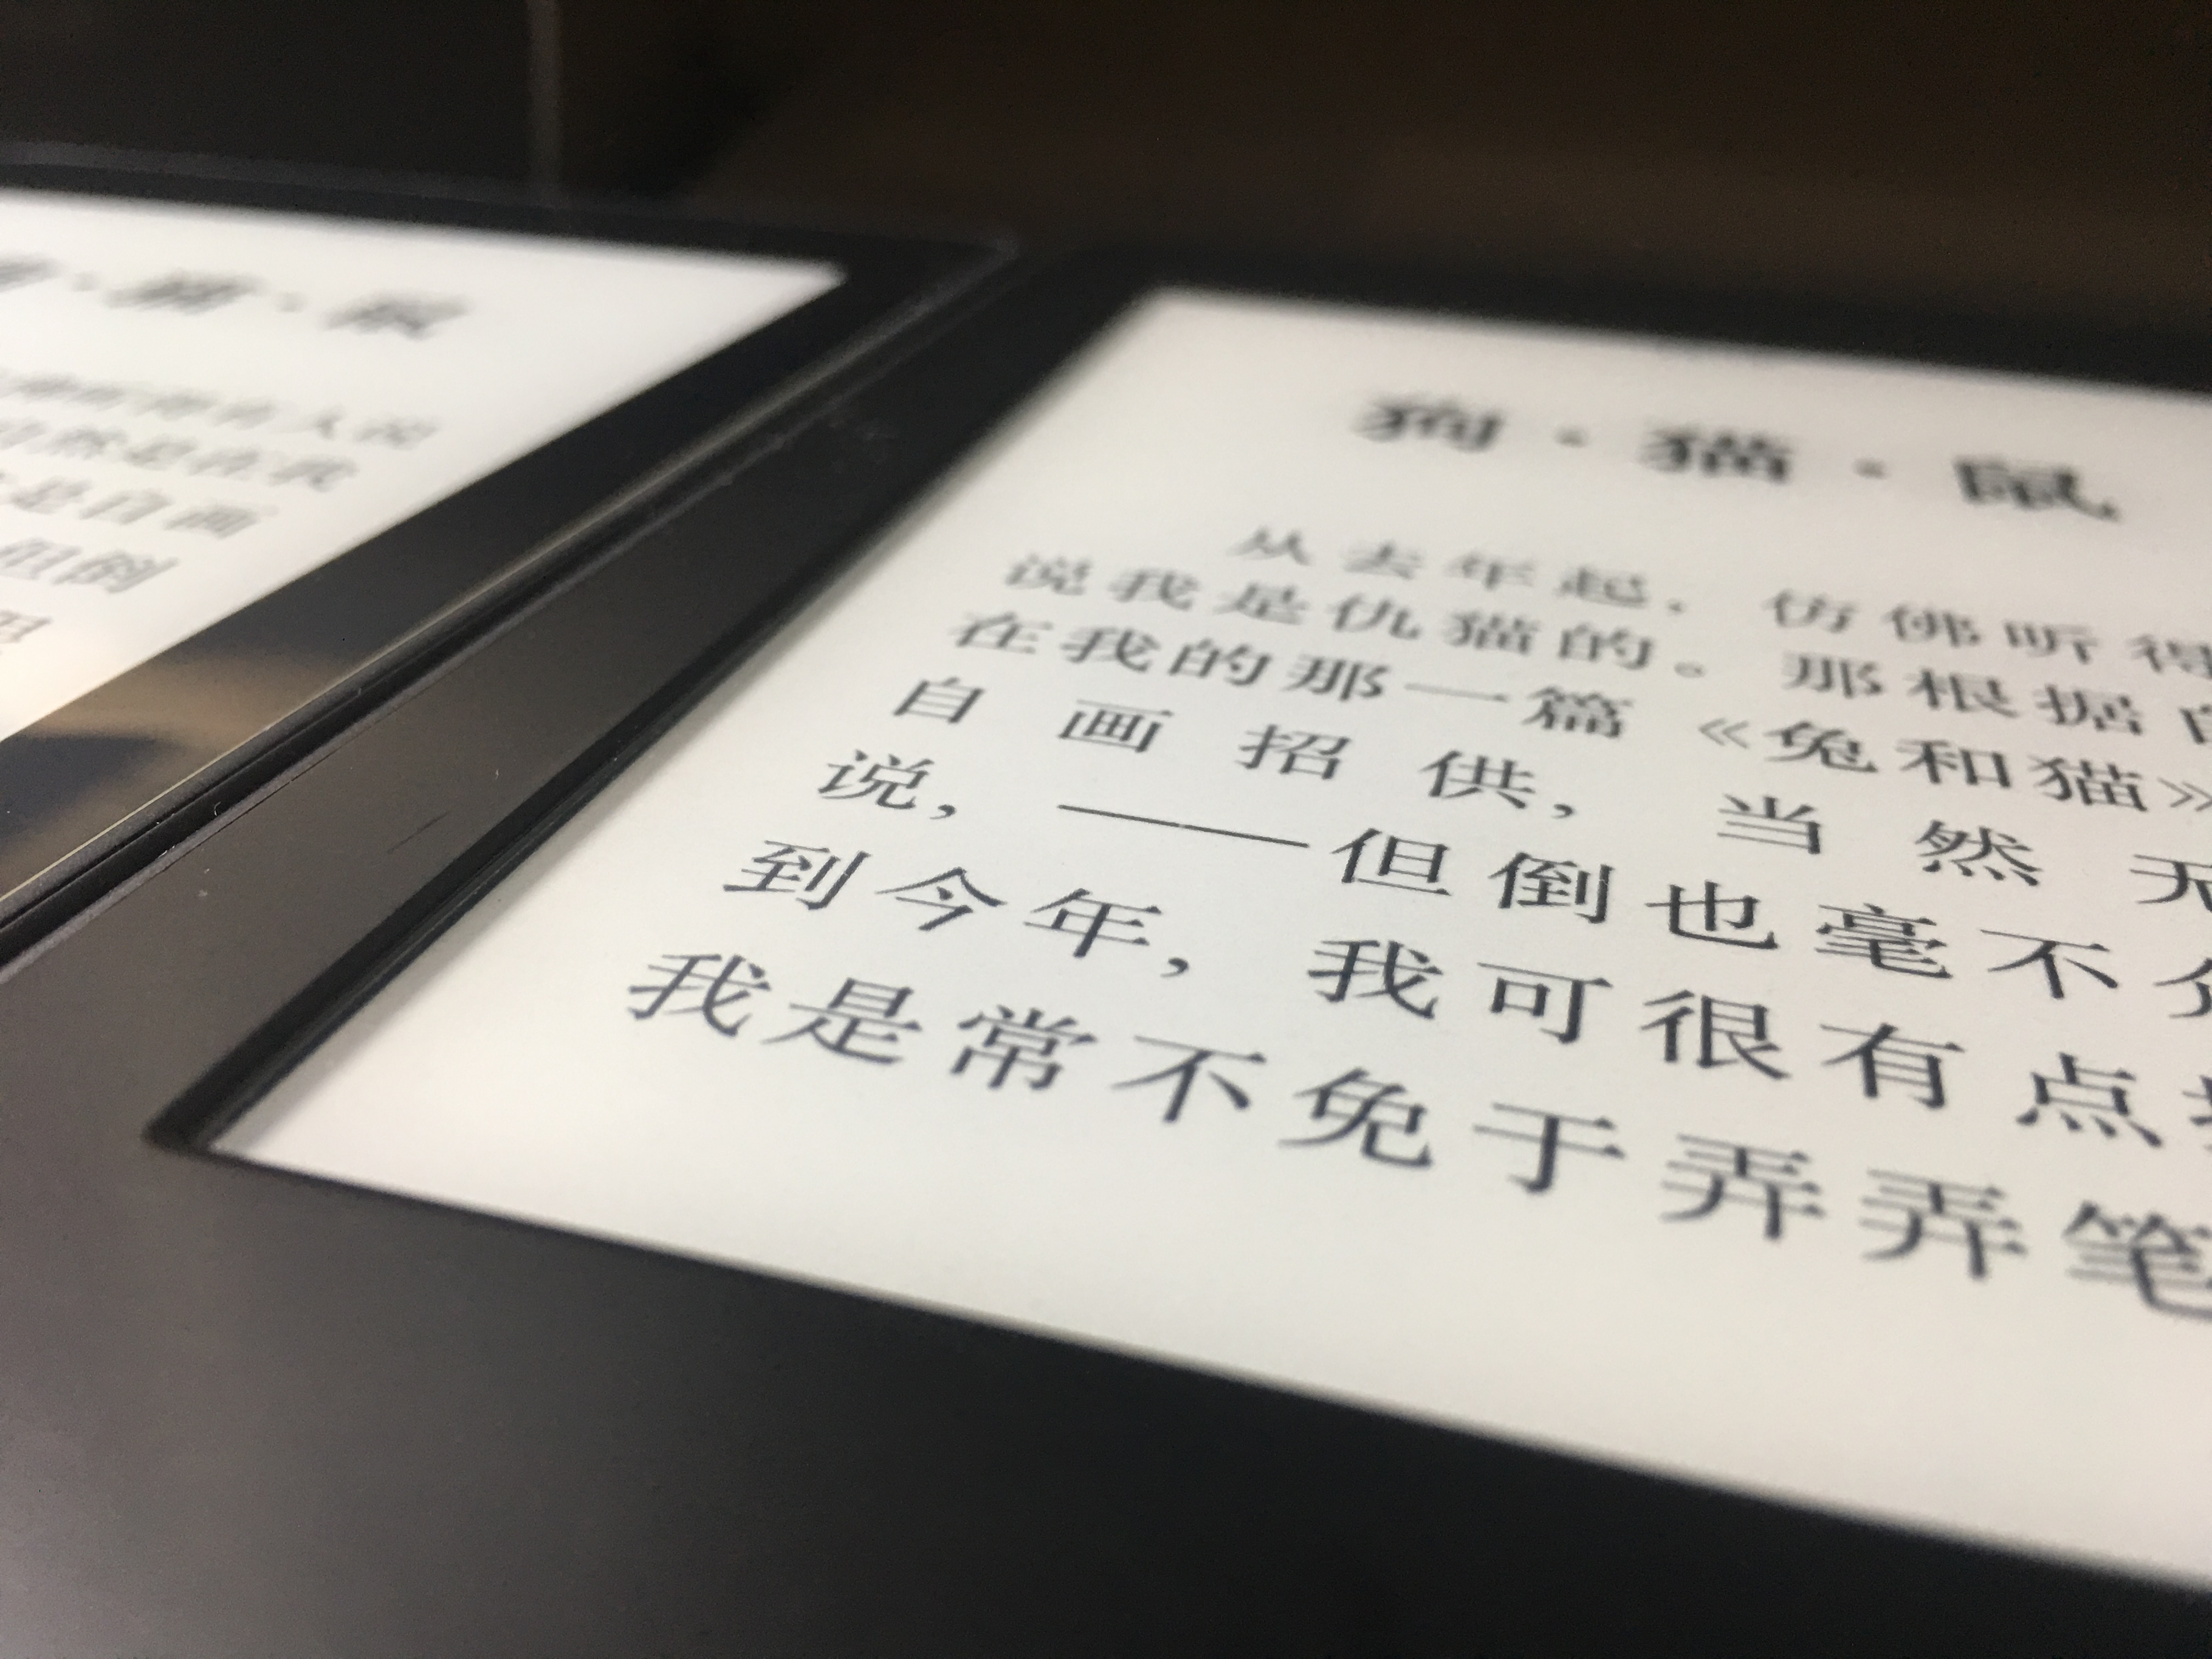 猫·鼠
人说
然是在我
是自画
但倒
狗·猫·鼠
从去年起，仿佛听得
说我是仇猫的。那根据
在我的那一篇《兔和猫》
自画招供，当然无
说，——但倒也毫不介
到今年，我可很有点
我是常不免于弄弄笔